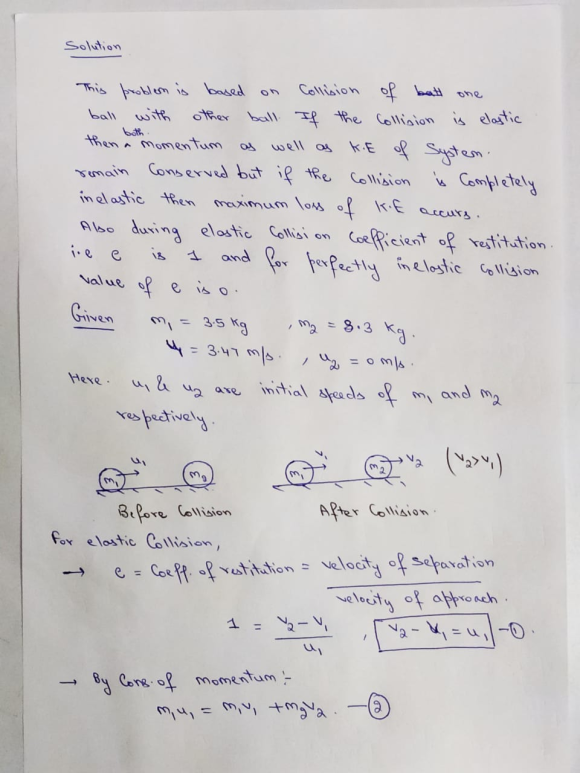 Solution
This problem is based on Collision of one
ball with other ball. If the Collision is elastic
then both momentum as well as K.E of System.
remain Conserved but if the Collision is Completely
inelastic then maximum loss of K.E accurs.
Also during elastic Collision Coefficient of restitution.
i.e e is 1 and for perfectly inelastic collision
value of e is 0.
Given m₁ = 3.5 kg , m₂ = 8.3 kg.
u₁ = 3.47 m/s. , u₂ = 0 m/s.
Here. u₁ & u₂ are initial speeds of m₁ and m₂
respectively.
m₁ u₁ m₂ m₁ v₁ m₂ v₂ (v₂>v₁)
Before Collision After Collision.
For elastic Collision,
→ e = Coeff. of restitution = velocity of separation
velocity of approach.
1 = v₂ - v₁ / u₁ , v₂ - v₁ = u₁ —①.
→ By Cons. of momentum :-
m₁u₁ = m₁v₁ + m₂v₂. —②